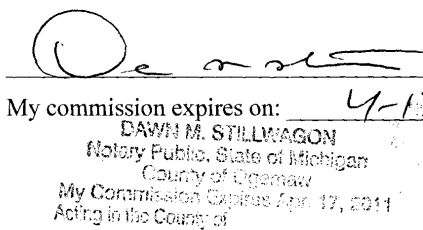 My commission expires on: 4-1
DAWN M. STILLWAGON
Notary Public, State of Michigan
County of Ogemaw
My Commission Expires Apr. 17, 2011
Acting in the County of